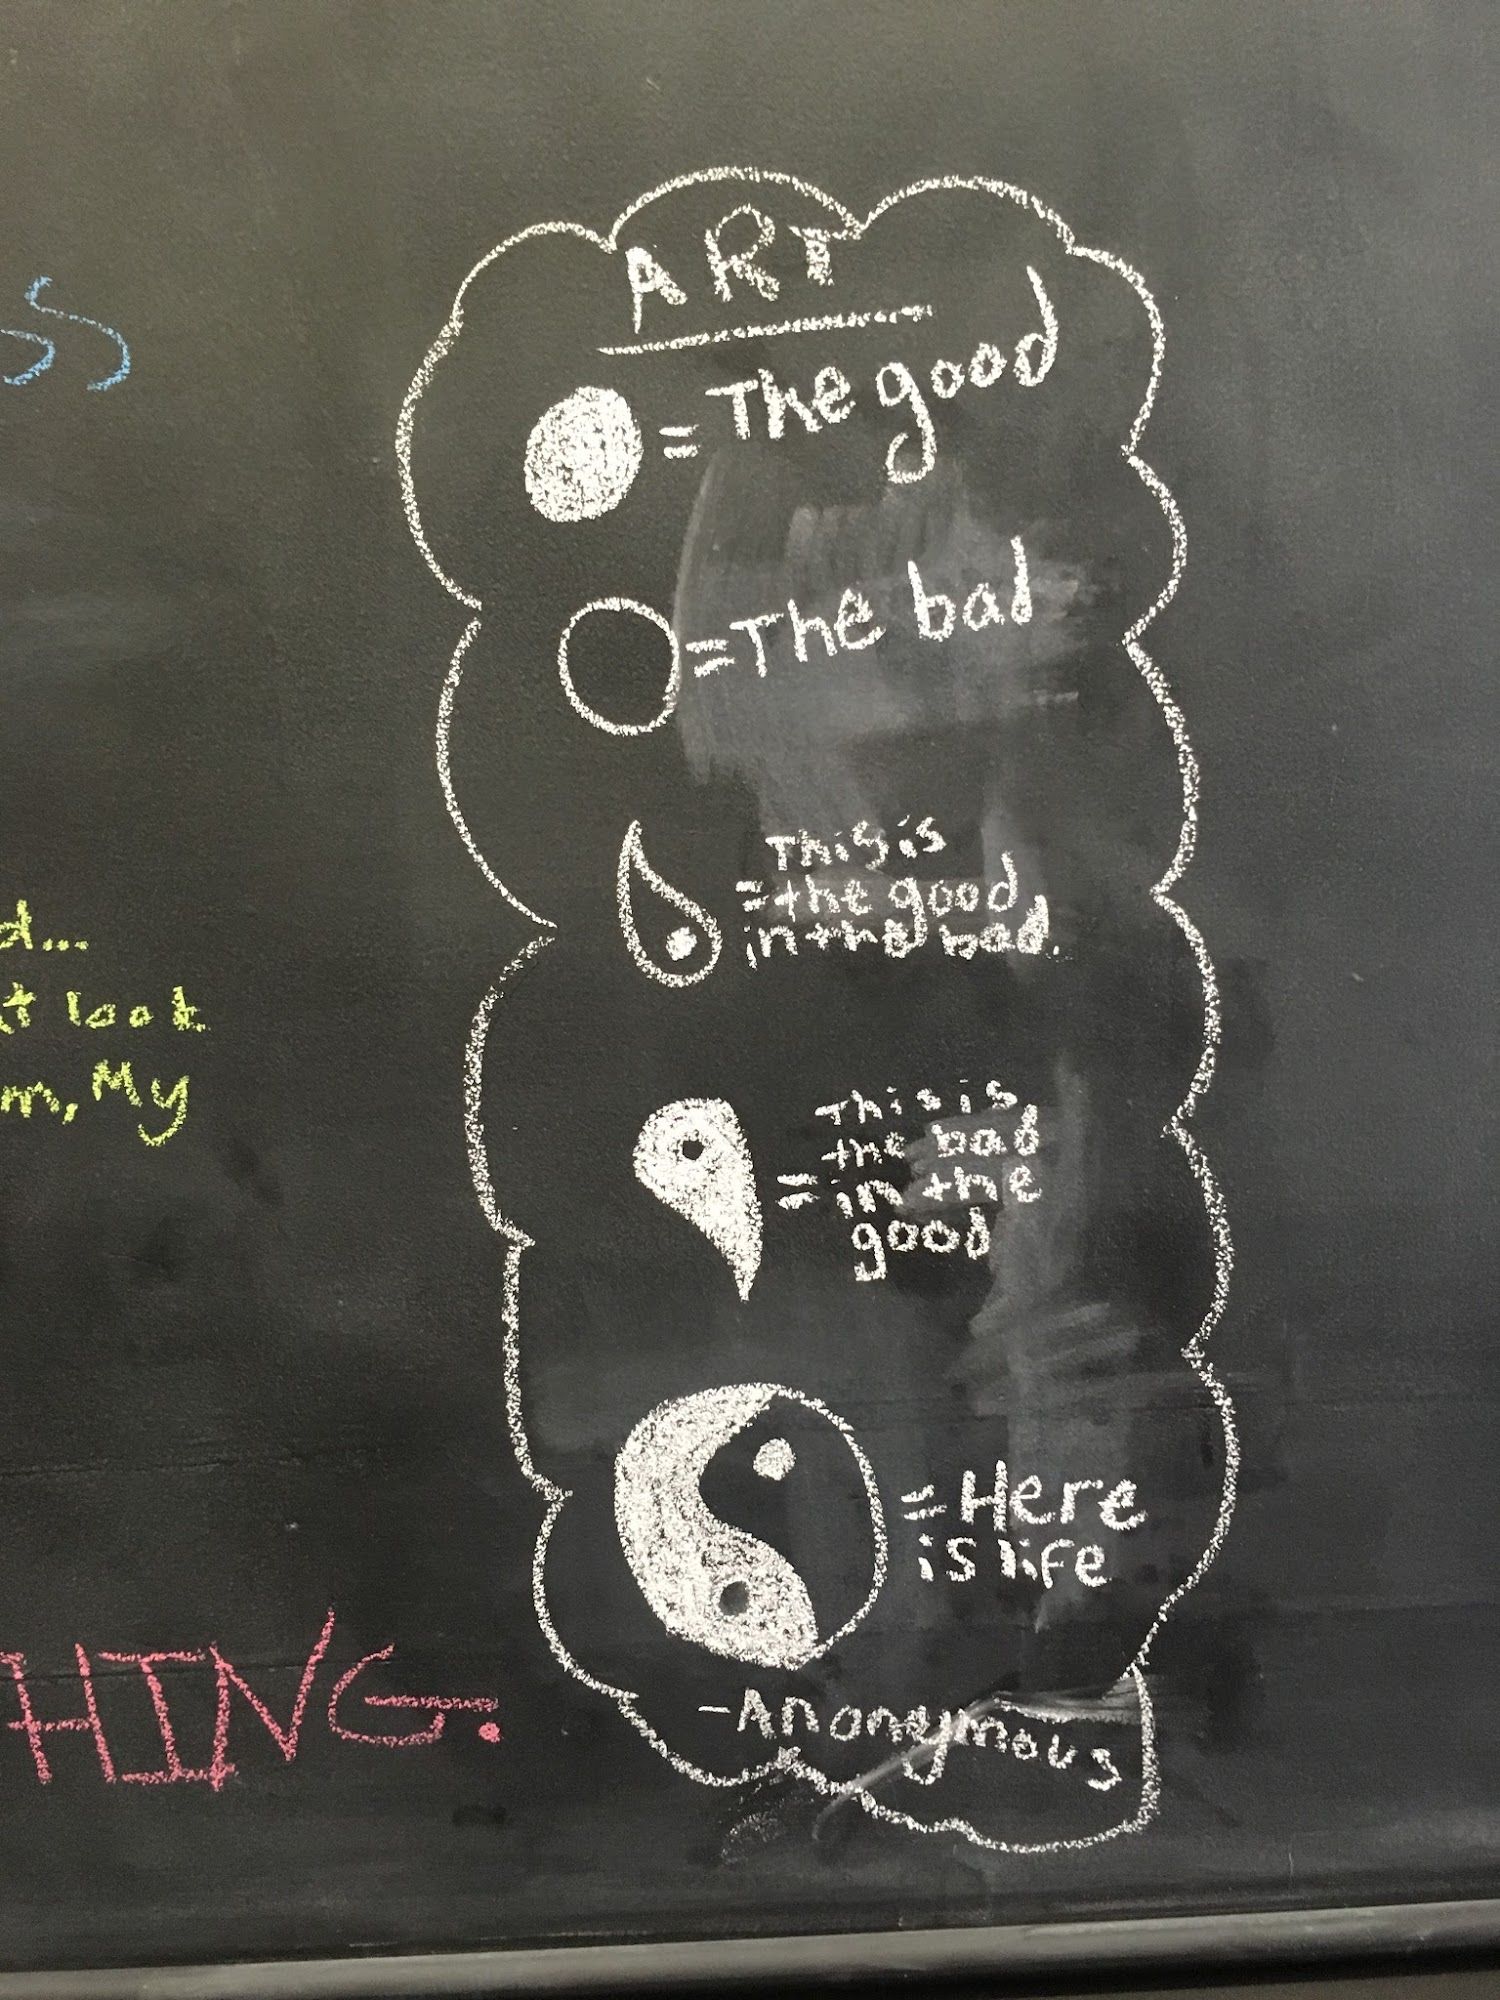 ss
d...
t look
m, My
HING.
ART
= The good
= The bad
This is
= the good
in the bad.
This is
the bad
= in the
good
= Here
is life
- Anonymous